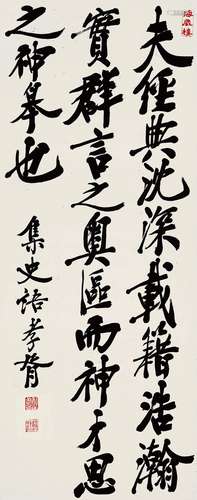 夫經典沈深載籍浩瀚
實群言之奧區而神才思
之神皋也
集史語孝胥